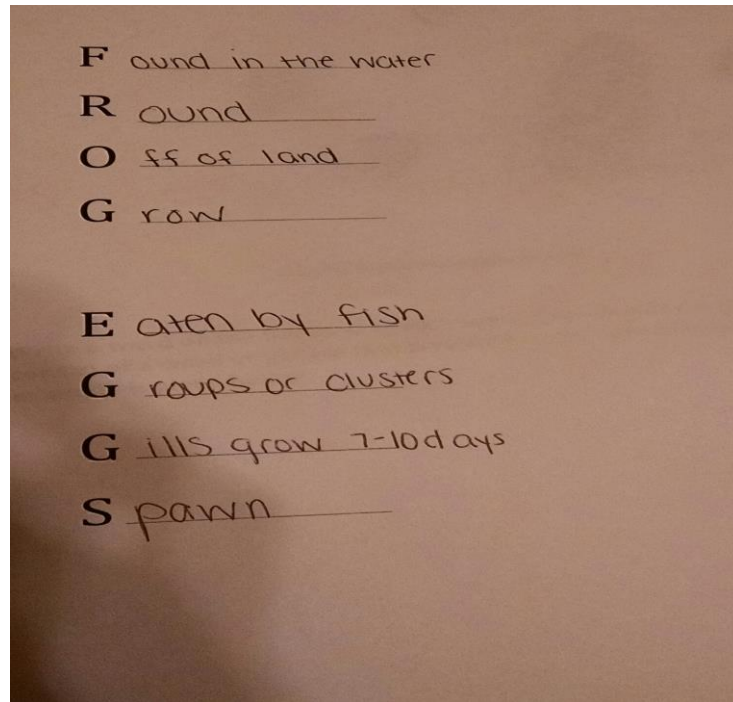 Found in the water
Round
Off of land
Grow
Eaten by fish
Groups or clusters
Gills grow 7-10 days
Spawn